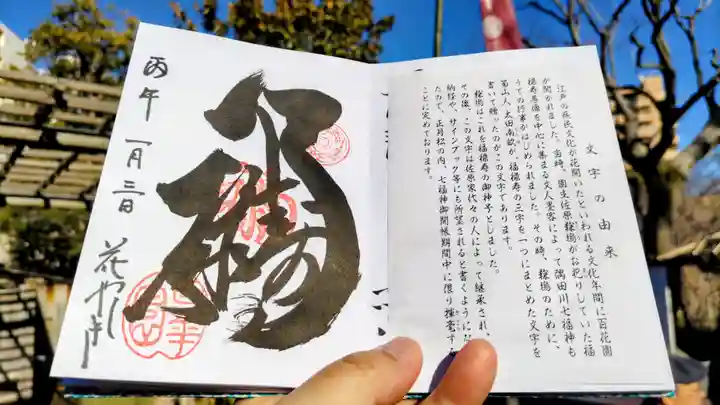 文字の由来
江戸の庶民文化が花開いたといわれる文化年間に百花園
が開かれました。当時、園主佐原鞠塢がお祀りしていた福
禄寿尊像を中心に集まる文人墨客によって隅田川七福神も
うでの行事がはじめられました。その時、鞠塢のために、
蜀山人・太田南畝が、福禄寿の三字を一つにまとめた文字を
書いて贈ったのがこの文字であります。
鞠塢はこれを福禄寿の御神号としました。
その後、この文字は佐原家代々の人によって継承され、
納経や、サインブック等にも所望されると書くようにな
たので、正月松の内、七福神御開帳期間中に限り揮毫す
ことに定めております。
丙午 一月三日
花やしき